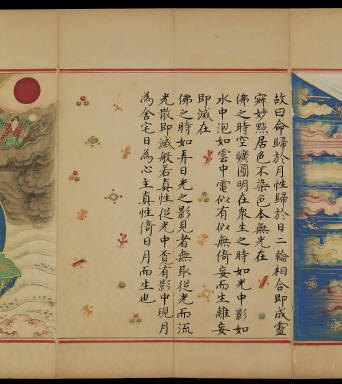 故曰命歸於月性歸於日二輪相合即成靈
寂妙點居色不染色本無光在
佛之時空曠圓明在衆生之時如光中影如
水中泡如雲中電似有似無倚妄而生離妄
即滅在
佛之時如弄日光之影見者無取從光而流
光散即滅般若真性從光中見有影中現月
為舍宅日為心主真性倚日月而生也